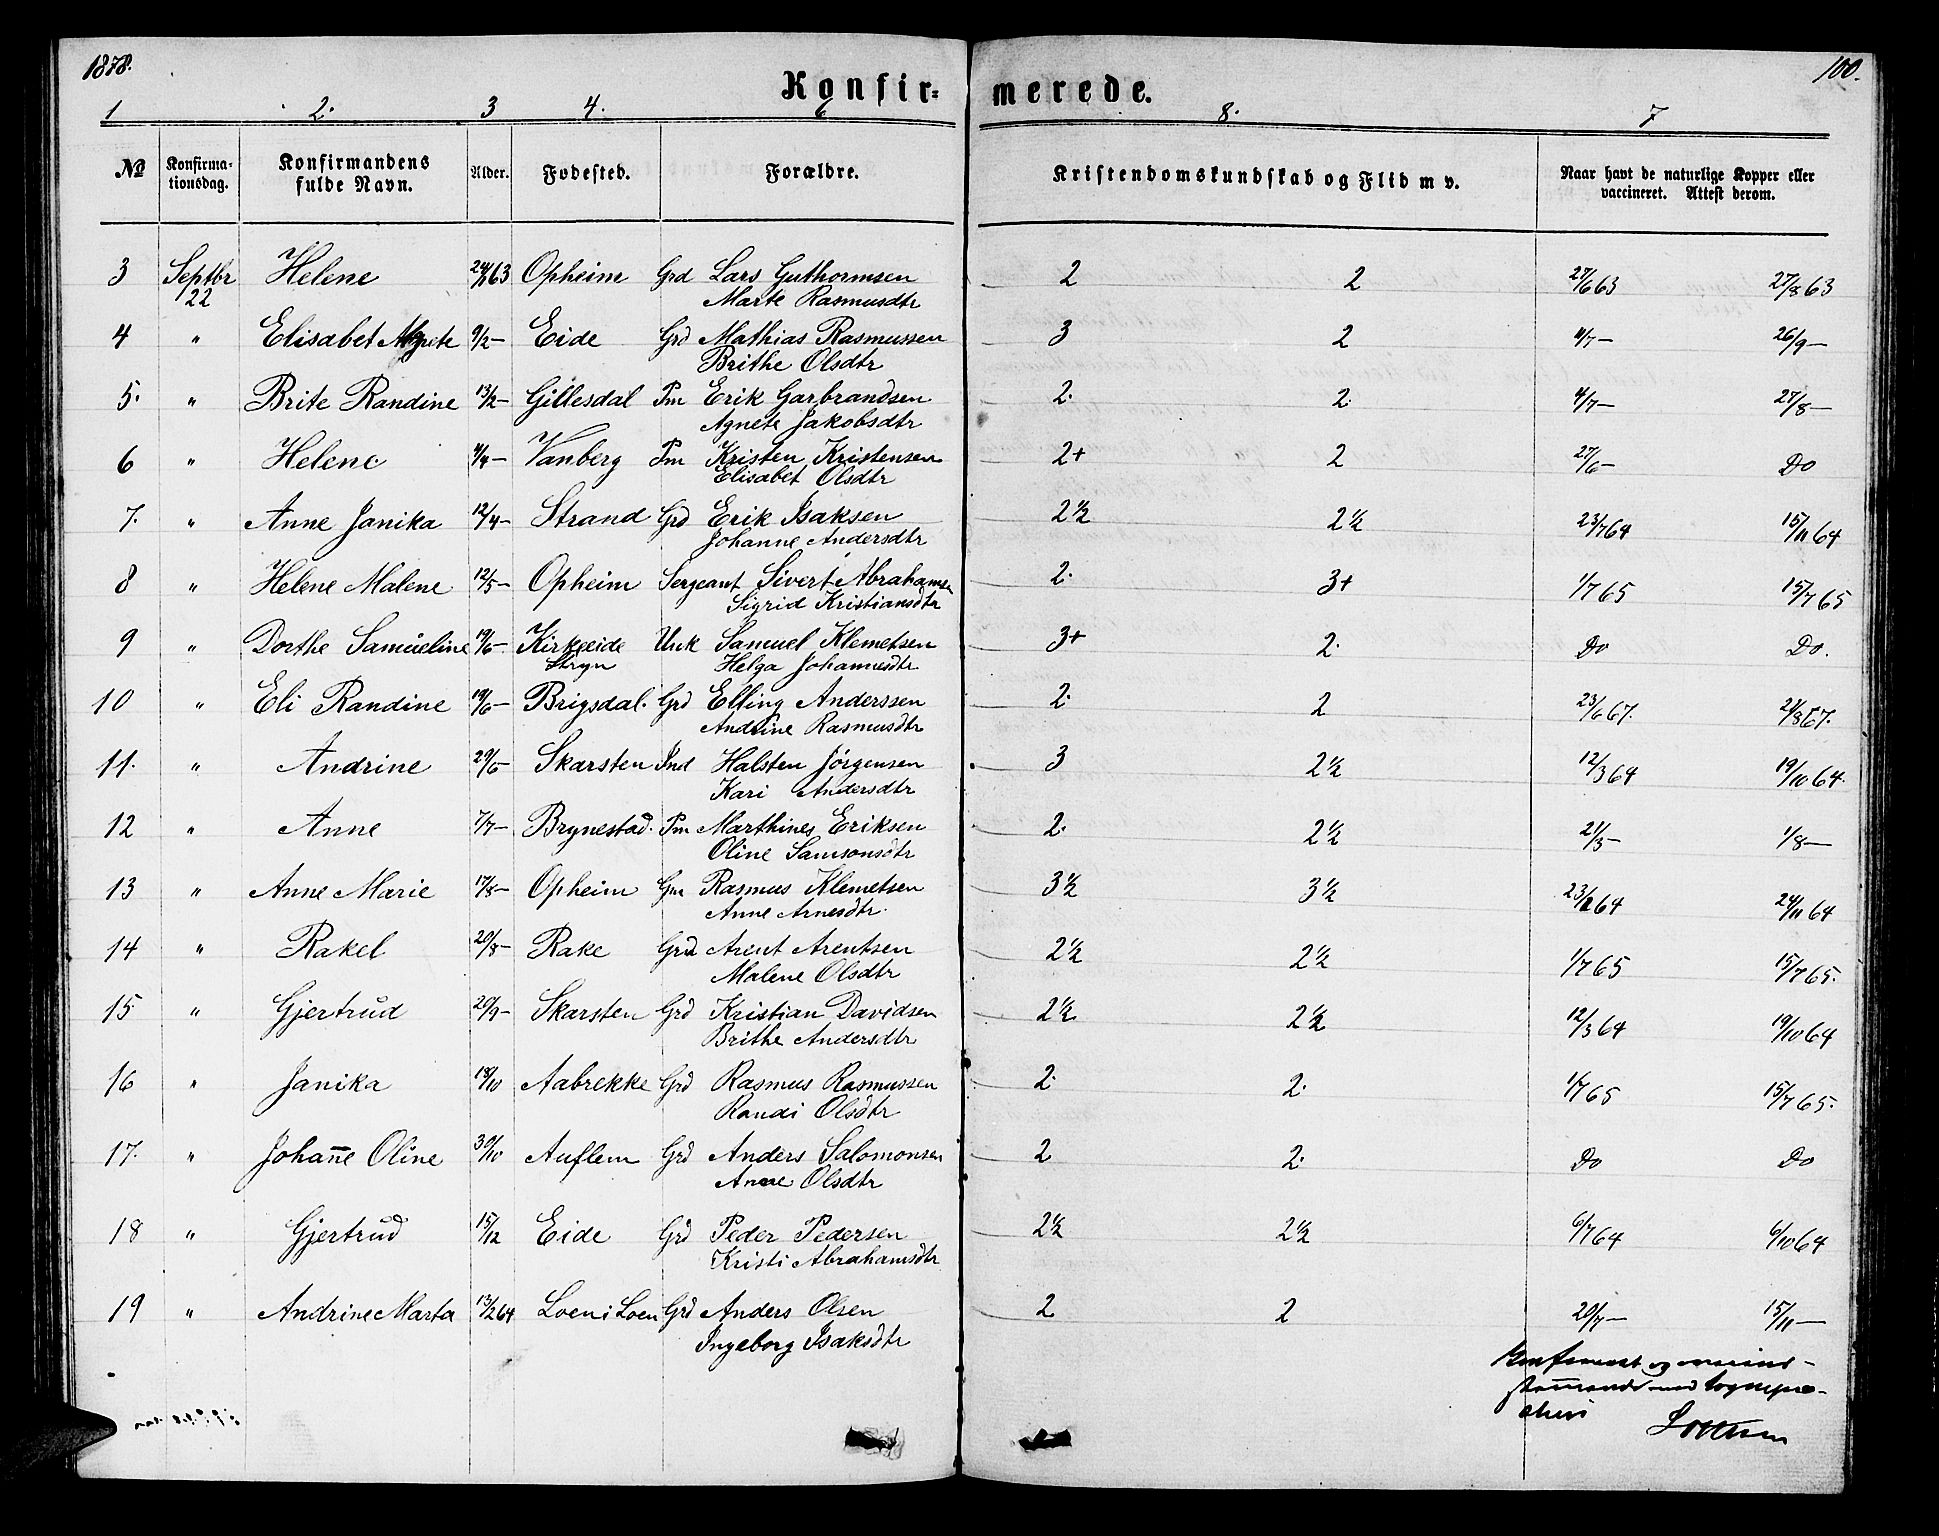 1878.
100.
Konfir= merede.
1 2. 3 4. 6 8. 7
No Konfirma- Konfirmandens Alder. Fødested. Forældre. Kristendomskundskab og Flid m v. Naar havt de naturlige Kopper eller
tionsdag. fulde Navn. vaccineret. Attest derom.
3 Septbr Helene 63 Opheim Grd Lars Guthormsen 2 2 27/6 63 27/8 63
22 Marte Rasmusdtr
4 " Elisabet Agnete 9/2- Eide Grd Mathias Rasmussen 3 2 4/7- 26/9-
Brithe Olsdtr
5. " Brite Randine 13/2- Gillesdal Pm Erik Garbrandsen 2. 2. 4/7- 27/8-
Agnete Jakobsdtr
6 " Helene 4/4- Vanberg Pm Kristen Kristensen 2+ 2 27/6- Do
Elisabet Olsdtr
7. " Anne Janika 12/4- Strand Grd Erik Isaksen 2½ 2½ 23/7 64 15/11 64
Johanne Andersdtr
8 " Helene Malene 12/5- Opheim Sergeant Sivert Abrahamsen 2. 3+ 1/7 65 15/7 65
Sigrid Kristiansdtr
9 " Dorthe Samueline 19/6- Kirkeeide Unk Samuel Klemetsen 3+ 2. Do Do.
Stryn Helga Johannesdtr
10 " Eli Randine 19/6- Brigsdal. Grd Elling Anderssen 2. 2 23/6 67. 21/8 67.
Andrine Rasmusdtr
11. " Andrine 29/6- Skarsten Ind Halsten Jörgensen 3 2½ 12/3 64 19/10 64.
Kari Andersdtr
12 " Anne 7/7- Brynestad. Pm Marthines Eriksen 2. 2½ 21/3- 1/8-
Oline Samsonsdtr
13 " Anne Marie 17/8- Opheim Gm Rasmus Klemetsen 3½ 3½ 23/2 64 24/11 64
Anne Arnesdtr.
14 " Rakel 20/8- Rake Grd Arent Arentsen 2½ 2½ 1/7 65 15/7 65.
Malene Olsdtr
15 " Gjertrud 20/9- Skarsten Grd Kristian Davidsen 2½ 2½ 12/3 64 19/10 64
Brithe Andersdtr
16 " Janika 18/10 Aabrekke Grd Rasmus Rasmussen 2. 2. 1/7 65 15/7 65.
Randi Olsdtr
17. " Johan̄e Oline 30/10 Auflem Grd Anders Salomonsen 2 2. Do Do
Anne Olsdtr
18 " Gjertrud 15/12 Eide Grd Peder Pedersen 2½ 2½ 6/7 64 6/10 64
Kristi Abrahamsdtr
19 " Andrine Marta 13/2 64 Loen i Loen Grd Anders Olsen 2 2 20/7- 15/11-
Ingeborg Isaksdtr
og
med